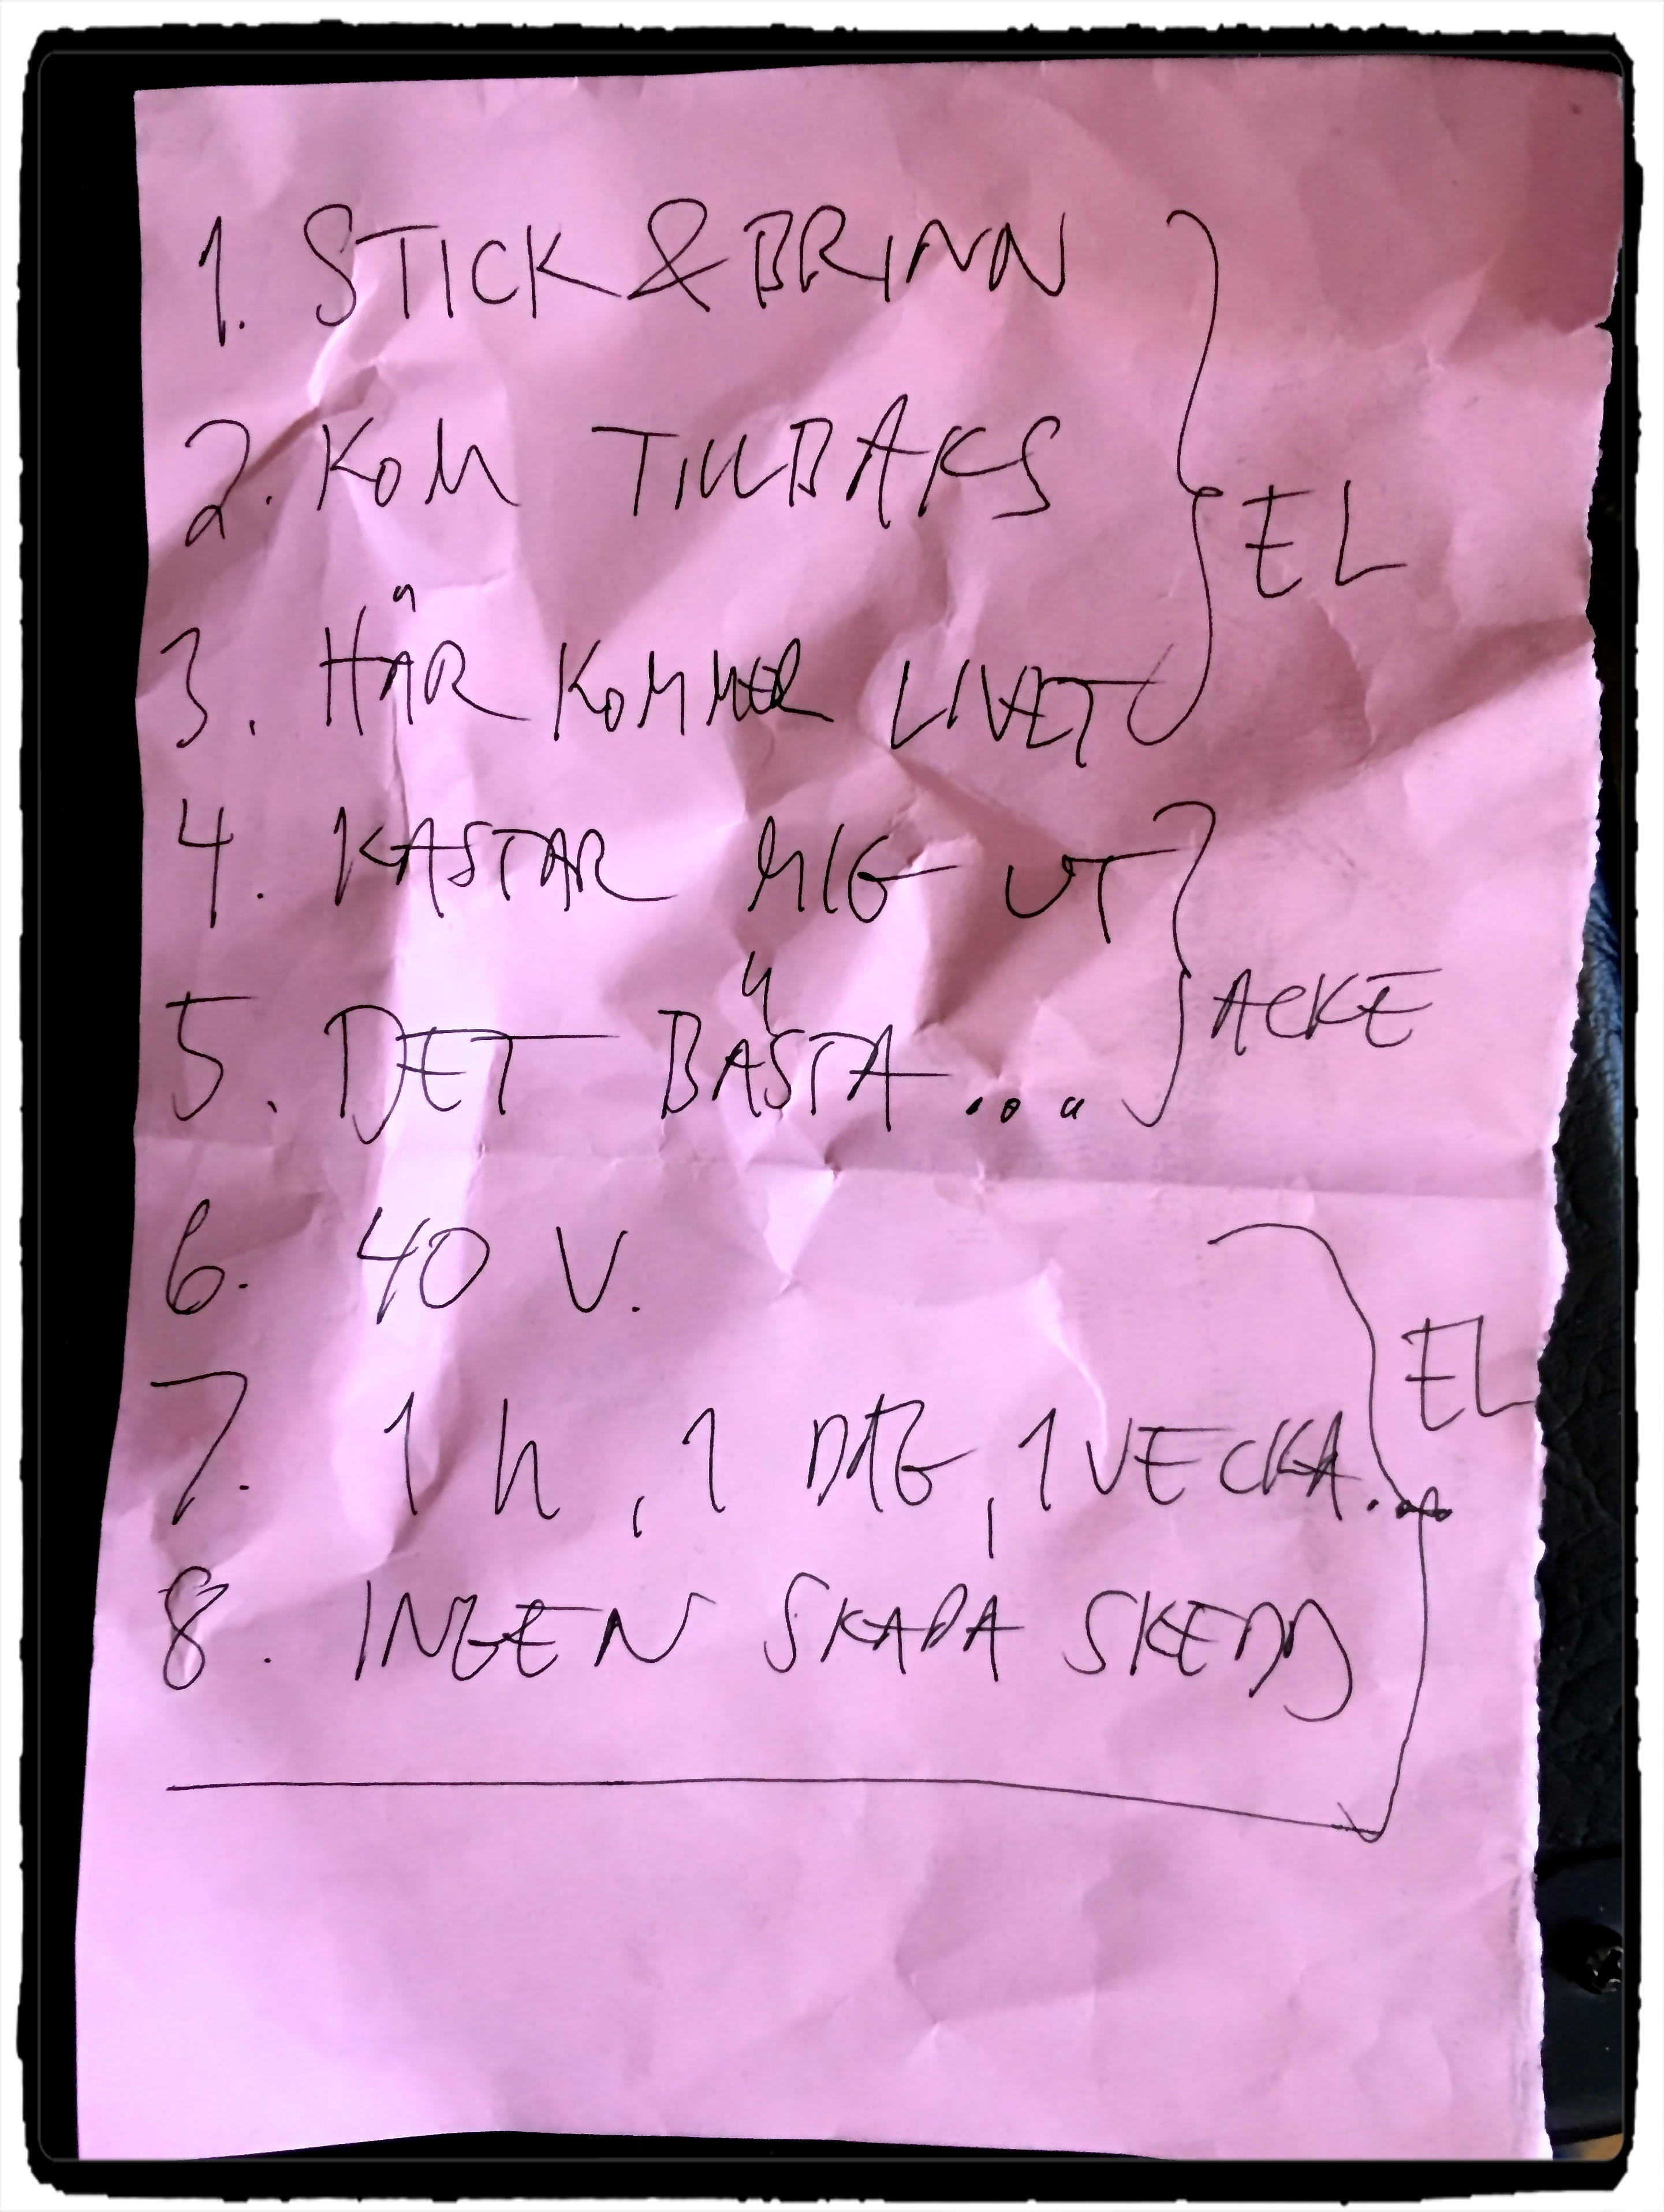 1. STICK & BRINN
2. KOM TILLBAKS
EL
3. HÄR KOMMER LIVET
4. KASTAR MIG UT
5. DET BÄSTA ...
ACKE
6. 40 V.
EL
7. 1 h, 1 DAG, 1 VECKA...
8. INGEN SKADA SKEDD